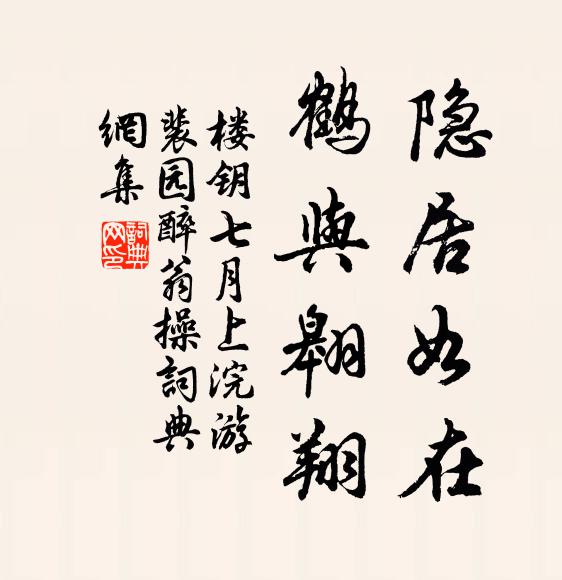 隐居如在
鹤与翱翔
楼钥七月上浣游
裴园醉翁操词典
網集
詞典網印